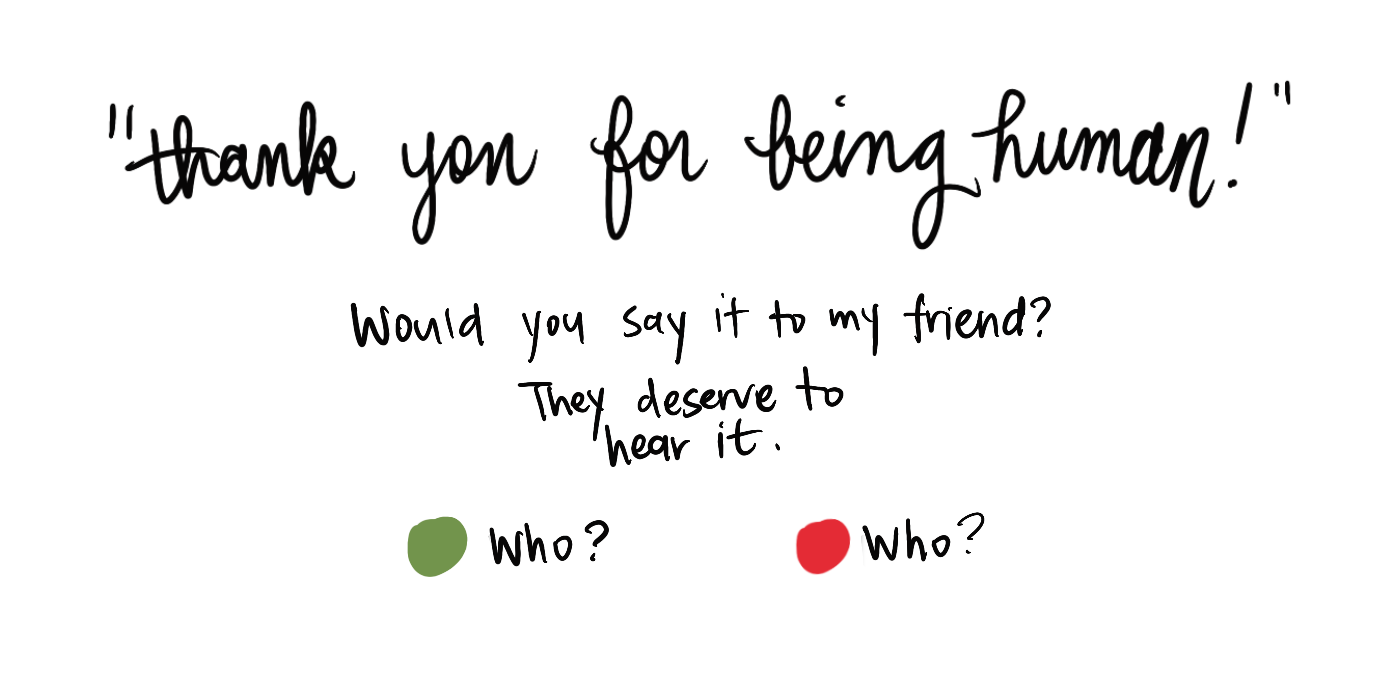 "thank you for being human!"
Would you say it to my friend?
They deserve to
hear it.
Who? Who?